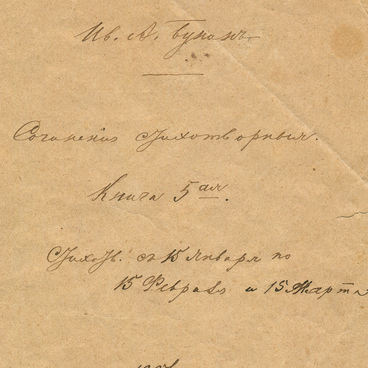 Ив. А. Бунинъ
Сочиненія стихотворныя.
Книга 5ая.
Стихотв. съ 15 Января по
15 Февраля и 15 Марта